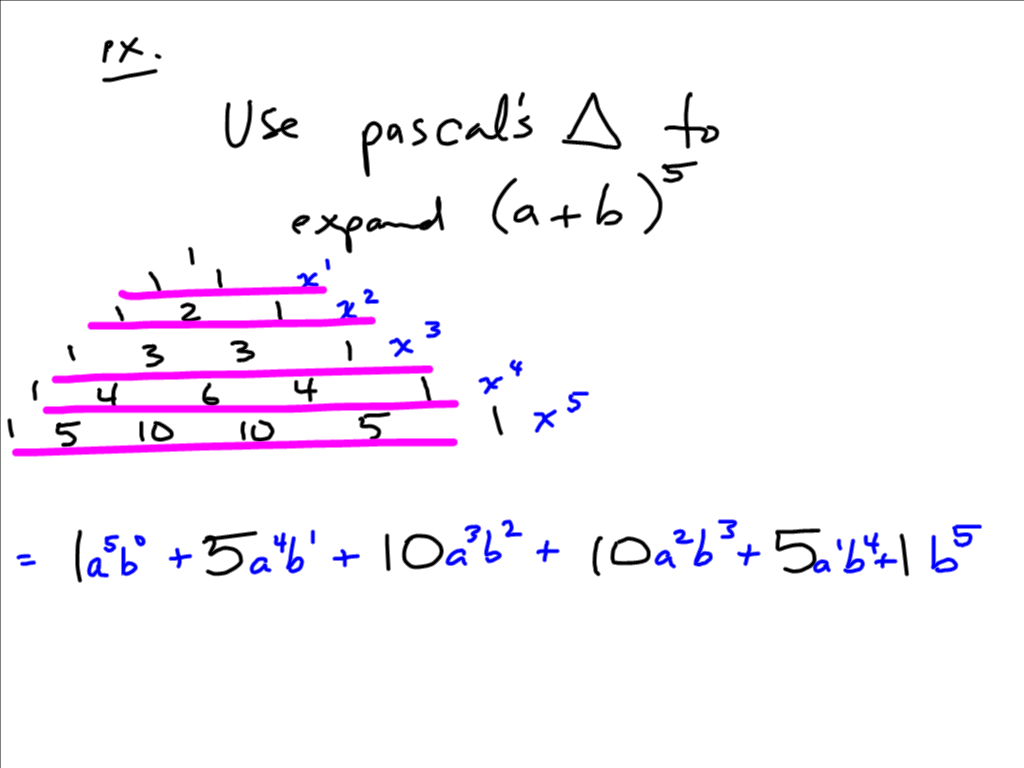 ex.
Use pascal's Δ to
expand (a+b)⁵
1
1 1 x¹
1 2 1 x²
1 3 3 1 x³
1 4 6 4 1 x⁴
1 5 10 10 5 1 x⁵
= 1a⁵b⁰ + 5a⁴b¹ + 10a³b² + 10a²b³ + 5a¹b⁴ + 1b⁵